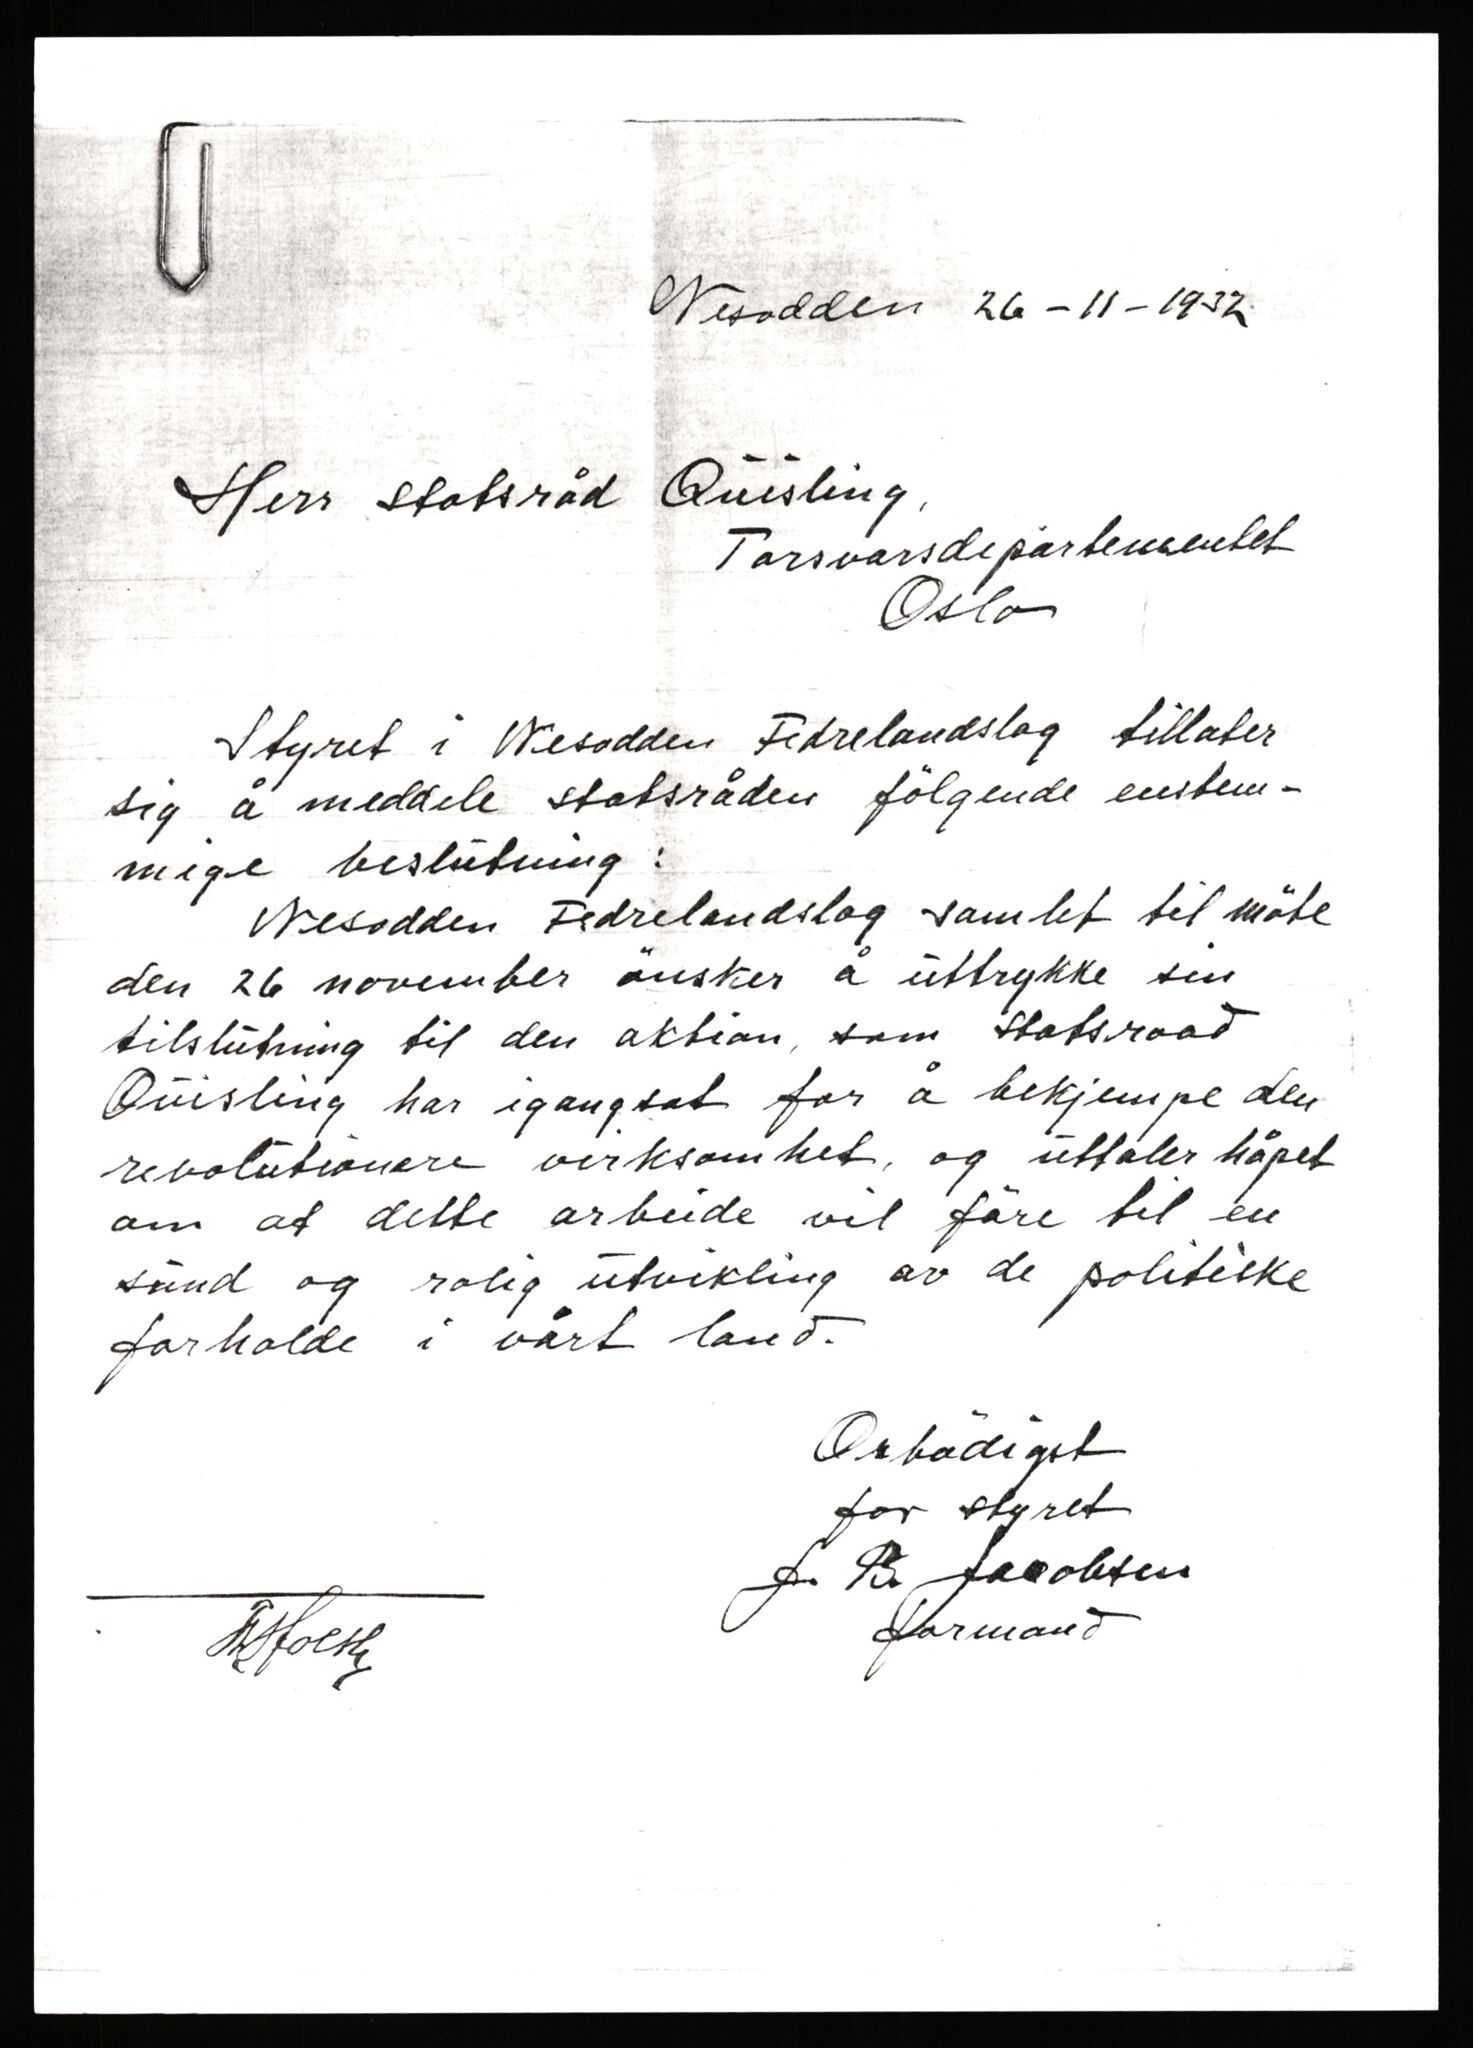 Nesodden 26-11-1932
Herr statsråd Quisling,
Forsvarsdepartementet
Oslo
Styret i Nesodden Fedrelandslag tillater
sig å meddele statsråden fölgende enstem-
mige beslutning:
Nesodden Fedrelandslag samlet til möte
den 26 november önsker å uttrykke sin
tilslutning til den aktion, som statsraad
Quisling har igangsat for å bekjempe den
revolutionære virksomhet, og uttaler håpet
om at dette arbeide vil före til en
sund og rolig utvikling av de politiske
forholde i vårt land.
Ærbödigst
for styret
J. B. Jacobsen
formand